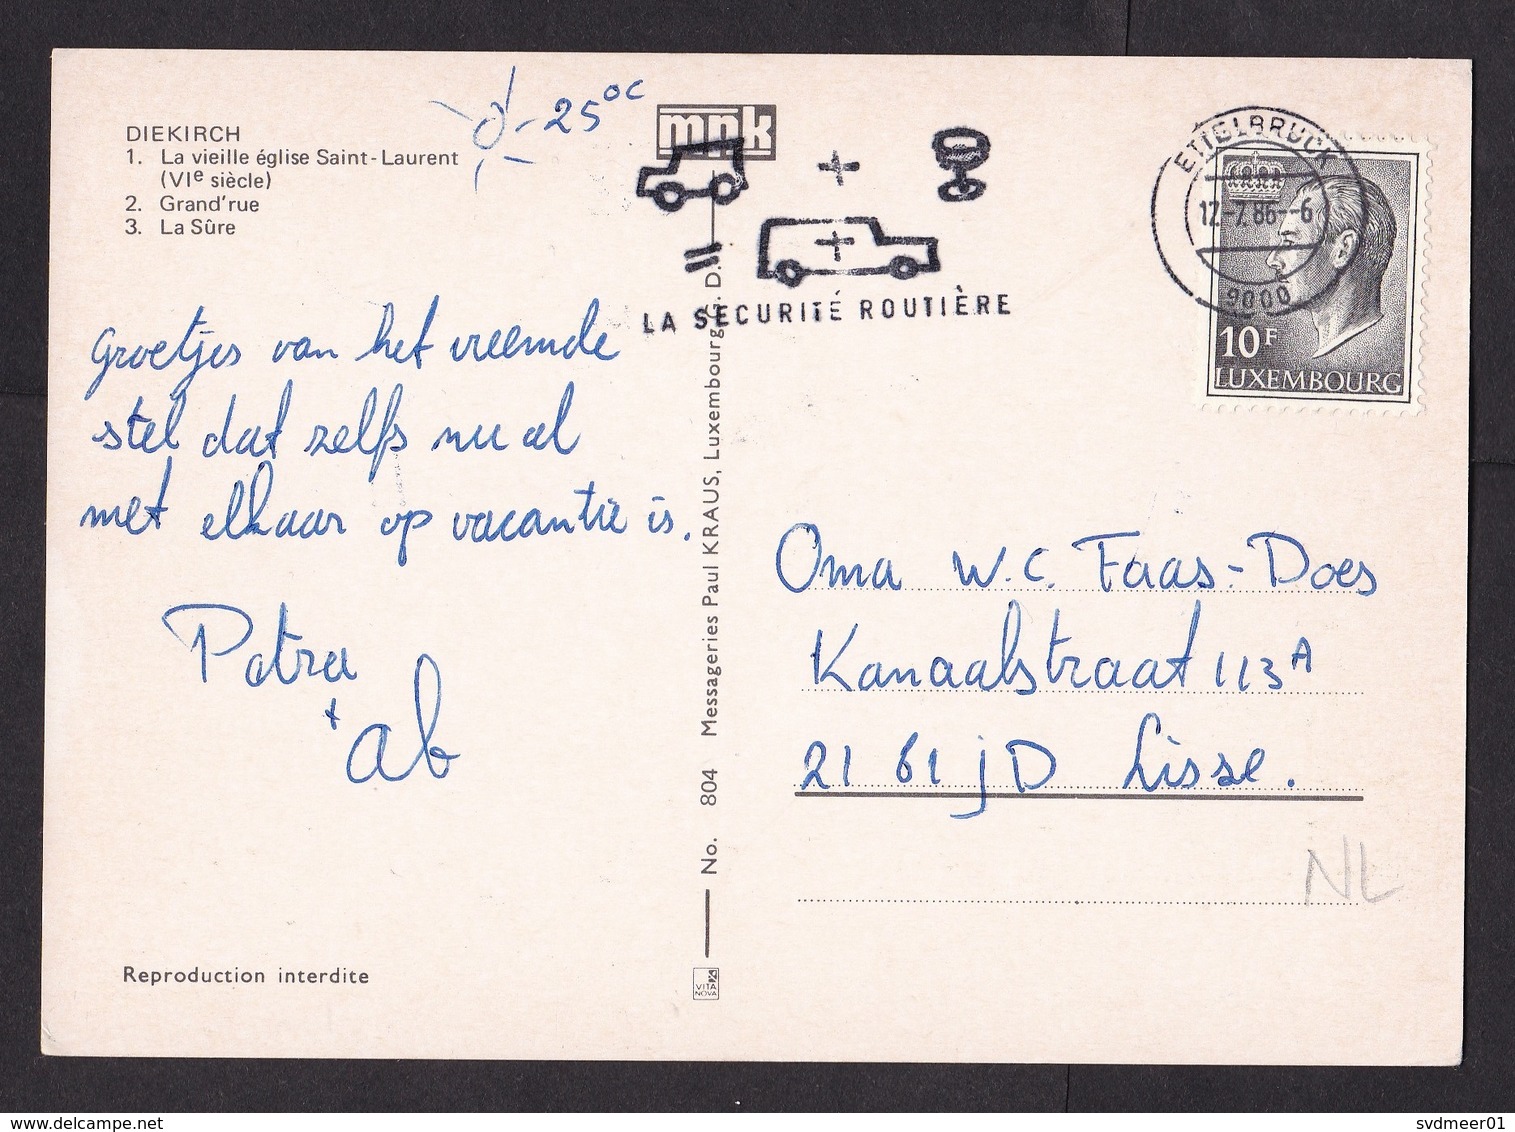 DIEKIRCH
1. La vieille église Saint-Laurent
(VIe siècle)
2. Grand'rue
3. La Sûre
25°C
mpk
LA SECURITÉ ROUTIÈRE
ETTELBRUCK
17.-7.86--6
9000
10F
LUXEMBOURG
Groetjes van het vreemde
stel dat zelfs nu al
met elkaar op vacantie is.
Petra
+
ab
No. 804 Messageries Paul KRAUS, Luxembourg G. D.
Oma W.C. Faas-Does
Kanaalstraat 113A
2161 JD Lisse.
NL
Reproduction interdite
VITA
NOVA
delcampe.net
svdmeer01